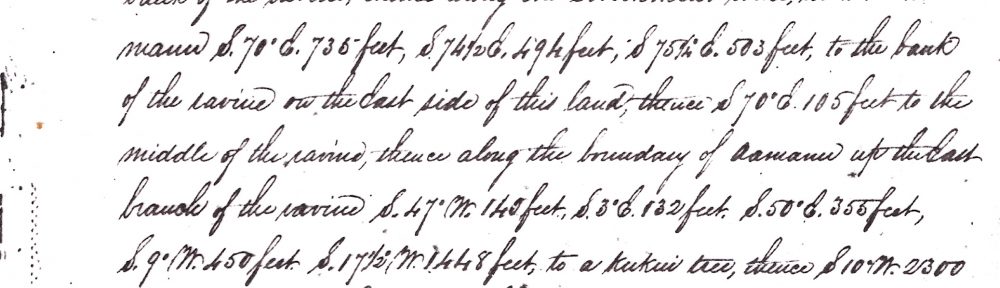 manu S. 70° E. 735 feet, S 74½ E. 494 feet, S 75½° E. 503 feet, to the bank
of the ravine on the East side of this land, thence S 70° E. 105 feet to the
middle of the ravine, thence along the boundary of Aamanu up the East
branch of the ravine S. 47° W. 149 feet, S. 3° E. 132 feet. S. 50° E. 355 feet,
S. 9° W. 450 feet. S. 17½° W. 1448 feet, to a Kukui tree, thence S 10° W. 2300